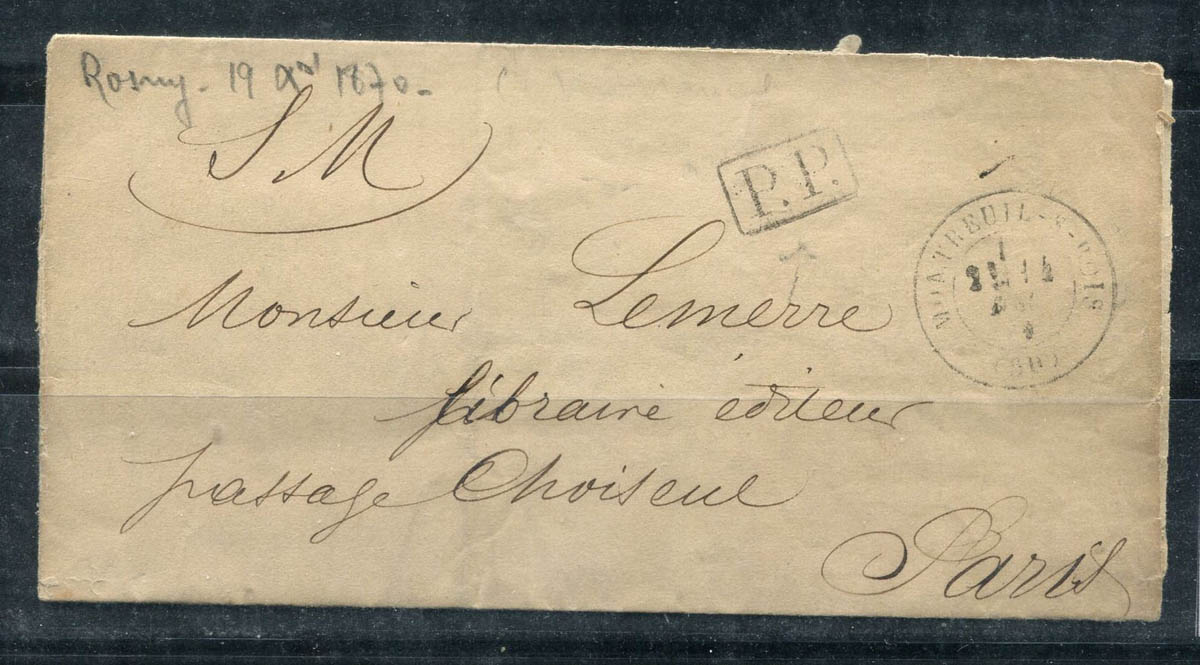 Rosny - 19 Xbre 1870 -
S M
P.P.
MONTREUIL-S-BOIS
Monsieur Lemerre
libraire éditeur
passage Choiseul
Paris